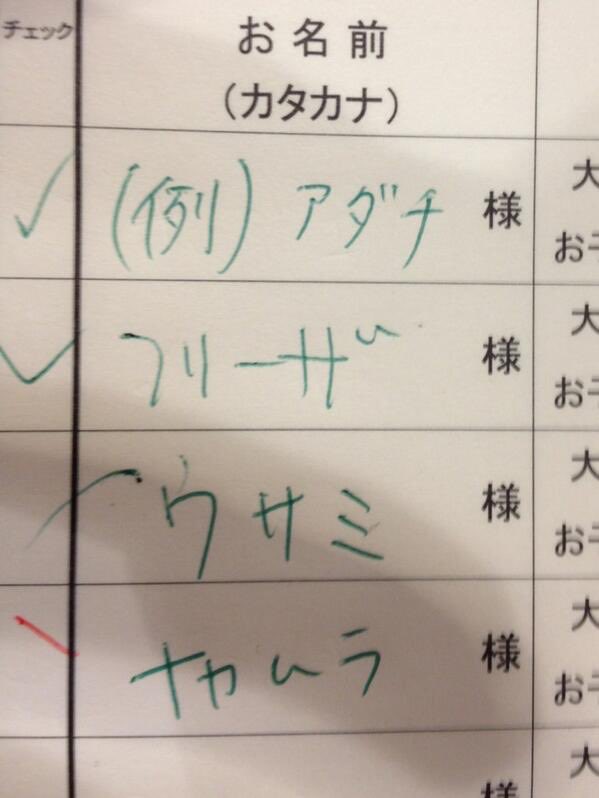 チェック
お名前
（カタカナ）
(例) アダチ 様
大
お子
フリーザ 様
大
お子
ウサミ 様
大
お子
ナカムラ 様
大
お子
様
大